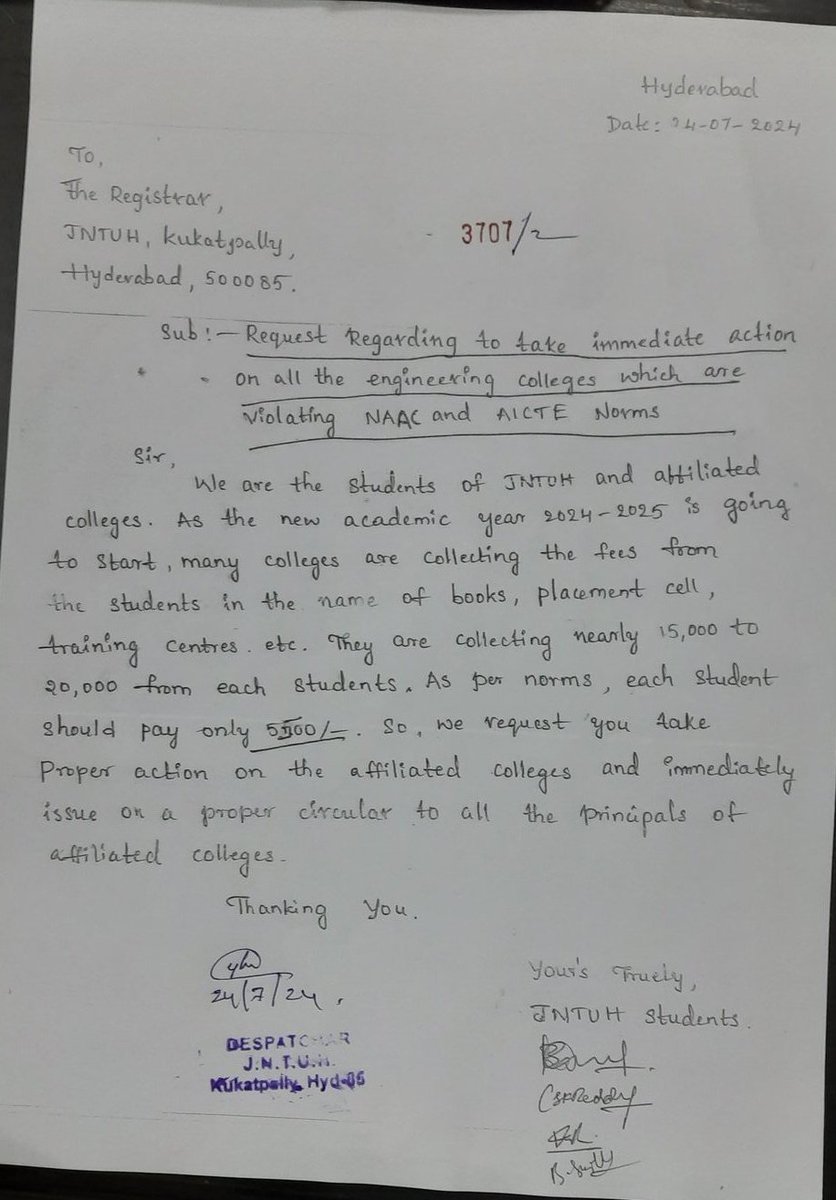 Hyderabad
Date: 24-07-2024
To,
The Registrar,
JNTUH, Kukatpally,
Hyderabad, 500085.
3707/2
Sub:- Request Regarding to take immediate action
on all the engineering colleges which are
violating NAAC and AICTE Norms
Sir,
We are the students of JNTUH and affiliated
colleges. As the new academic year 2024-2025 is going
to start, many colleges are collecting the fees from
the students in the name of books, placement cell,
training centres. etc. They are collecting nearly 15,000 to
20,000 from each students. As per norms, each student
should pay only 5500/-. So, we request you take
Proper action on the affiliated colleges and immediately
issue on a proper circular to all the principals of
affiliated colleges.
Thanking You.
24/7/24.
DESPATCHAR
J.N.T.U.H.
Kukatpally, Hyd-85
Your's Truely,
JNTUH Students.
CSKReddy